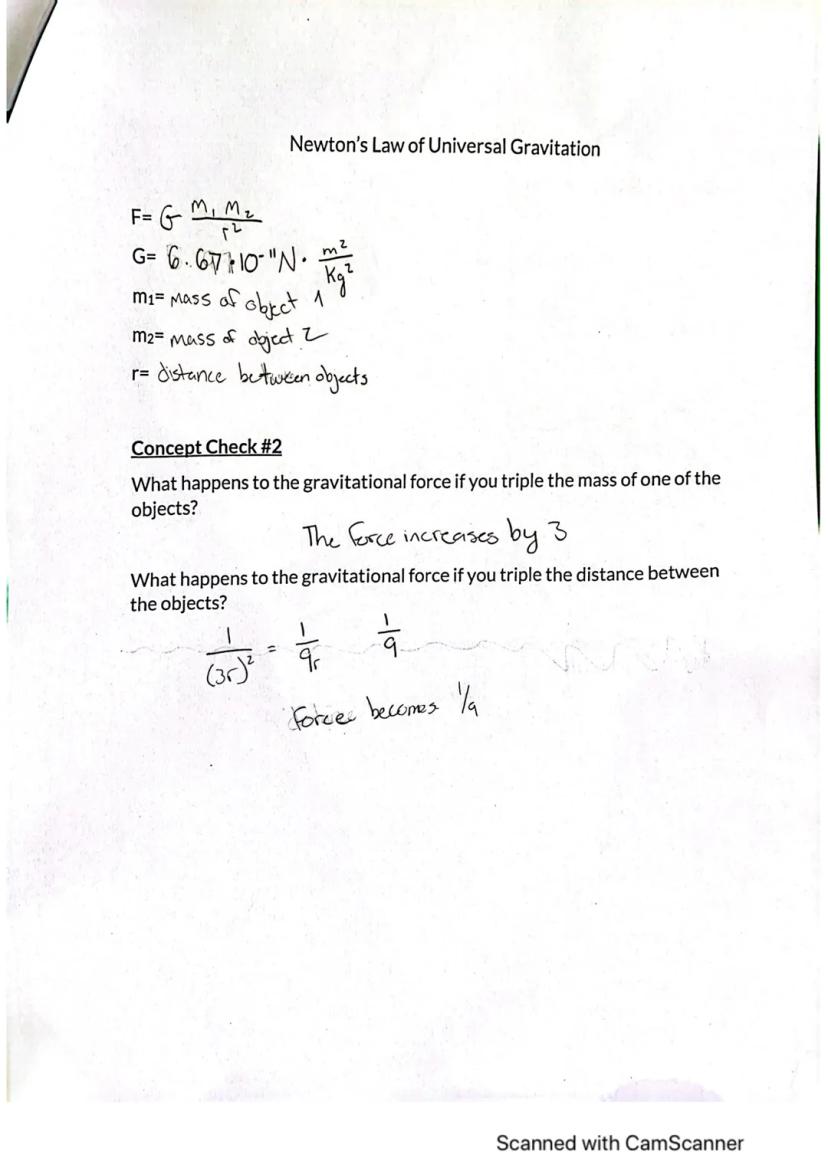 Newton's Law of Universal Gravitation
F= G m₁ m₂ / r²
G= 6.67·10⁻¹¹ N · m² / Kg²
m1= mass of object 1
m2= mass of object 2
r= distance between objects
Concept Check #2
What happens to the gravitational force if you triple the mass of one of the
objects?
The force increases by 3
What happens to the gravitational force if you triple the distance between
the objects?
1 / (3r)² = 1 / 9r 1 / 9
Force becomes 1/9
Scanned with CamScanner